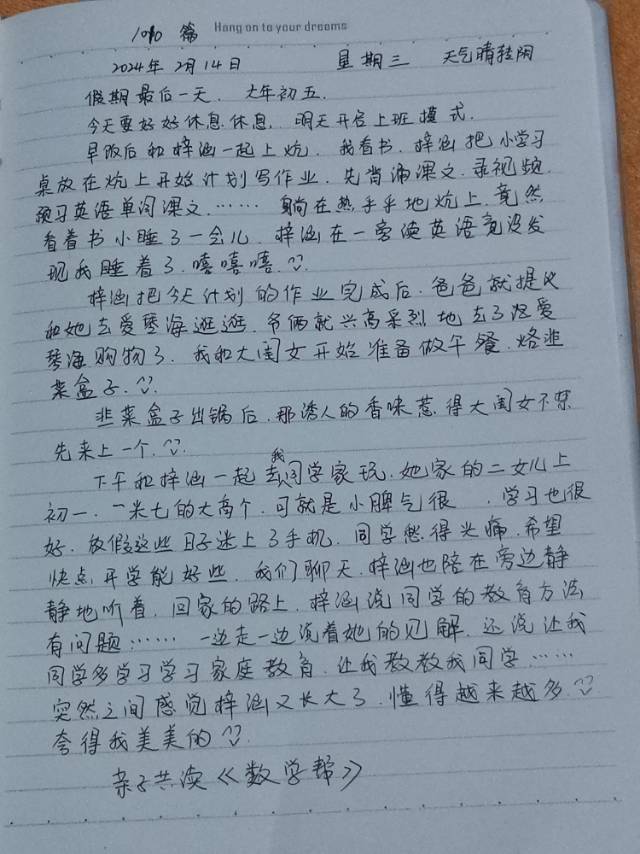 1090 篇 Hang on to your dreams
2024年 2月14日 星期三 天气晴转阴
假期最后一天、大年初五.
今天要好好休息休息, 明天开启上班模式.
早饭后和梓涵一起上炕、我看书、梓涵把小学习
桌放在炕上开始计划写作业、先背诵课文、录视频、
预习英语单词课文、…… 躺在热乎乎地炕上、竟然
看着书小睡了一会儿、梓涵在一旁读英语竟没发
现我睡着了、嘻嘻嘻.
梓涵把今天计划的作业完成后、爸爸就提议
和她去爱琴海逛逛、爷俩就兴高采烈地去了逛爱
琴海购物了、我和大闺女开始准备做午餐、烙韭
菜盒子.
韭菜盒子出锅后、那诱人的香味惹得大闺女不禁
先来上一个.
下午和梓涵一起去我同学家玩、她家的二女儿上
初一、一米七的大高个、可就是小脾气很 、学习也很
好、放假这些日子迷上了手机、同学愁得头痛、希望
快点开学能好些、我们聊天、梓涵也陪在旁边静
静地听着、回家的路上、梓涵说同学的教育方法
有问题…… 一边走一边说着她的见解、还说让我
同学多学习学习家庭教育、让我教教我同学……
突然之间感觉梓涵又长大了、懂得越来越多.
夸得我美美的.
亲子共读《数学帮》